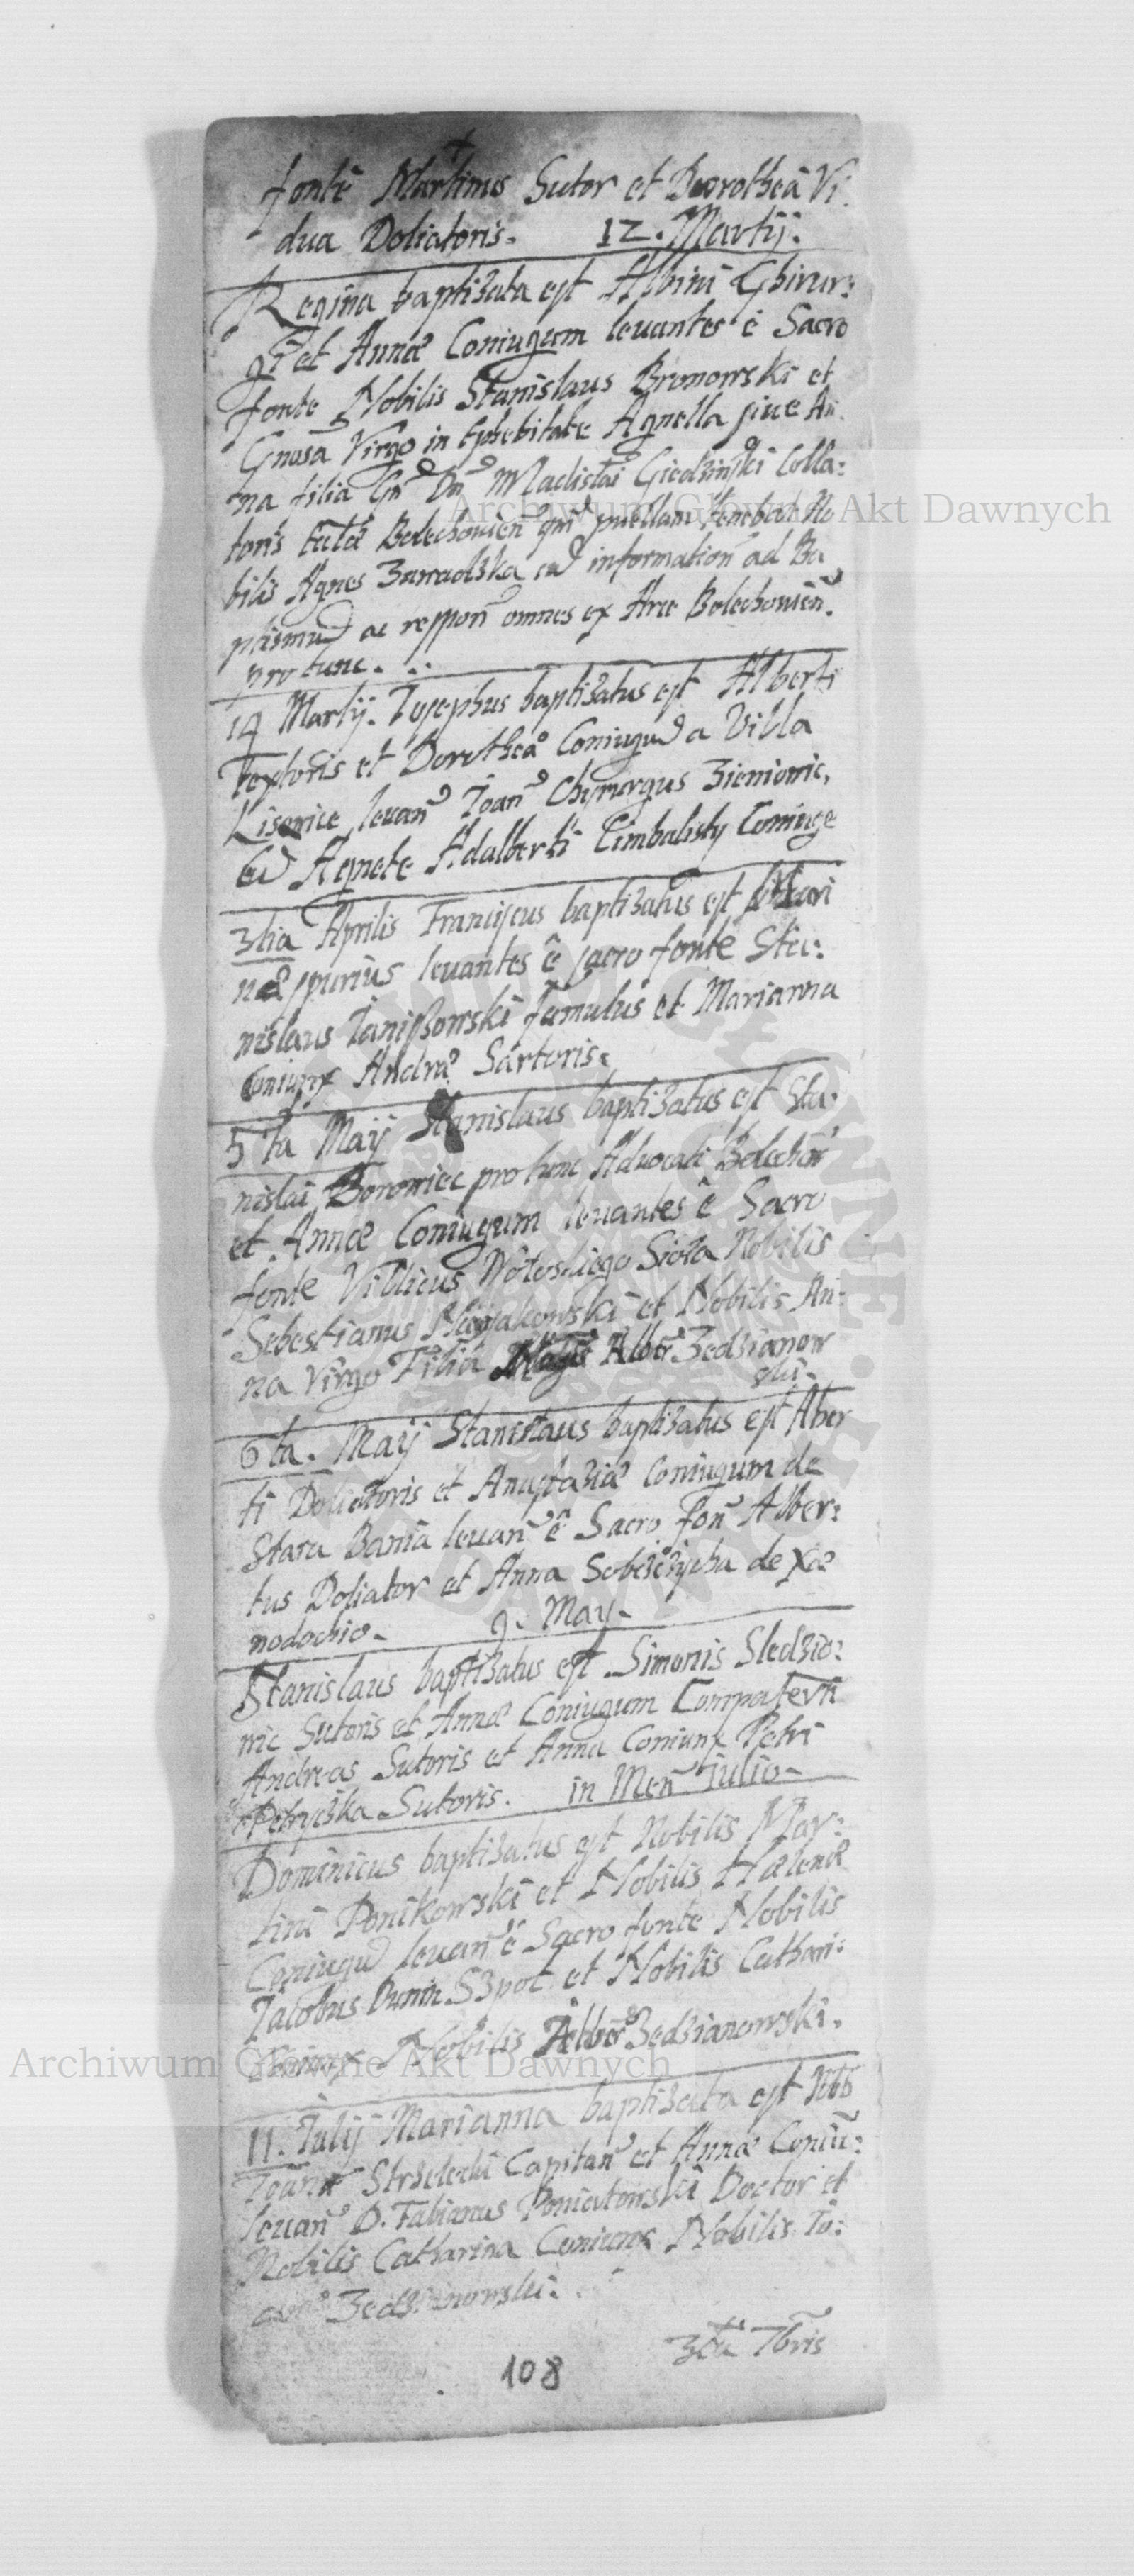 fonte Martinus Sutor et Dorothea Vi
dua Doliatoris. 12. Martij.
Regina baptisata est Albini Chirur:
gi et Annæ Coniugum leuantes ê Sacro
fonte Nobilis Stanislaus Bronowski et
Gnosa Virgo in Ephebitate Agnella siue An
na filia Gn Dn Wladislai Giedzinski Colla:
toris Eccłæ Bolechouien qm puellam tenebat No
bilis Agnes Zawadska cu information ad Ba
ptismu ac respon omnes ex Arce Bolechouien.
pro tunc.
14 Martij. Josephus baptisatus est Alberti
Textoris et Dorotheæ Coniugu a Villa
Lisowice leuan Joan Chyrurgus Zieniowic,
Cu Agnete Adalberti Cimbalisty Coniuge
3tia Aprilis Franciscus baptisatus est Mari
næ spurius leuantes ê sacro fonte Sta:
nislaus Janiszowski famulus et Marianna
Coniunx Andreæ Sartoris.
5ta Maij Stanislaus baptisatus est Sta:
nislai Borowiec pro tunc Aduocati Bolechou
et Annæ Coniugum leuantes ê Sacro
fonte Villicus Wołoskiego Sioła Nobilis
Sebestianus et Nobilis An:
na Virgo Filia Alber Zedzianow
ski.
6ta. Maij Stanislaus baptisatus est Alber
ti Doliatoris et Anastasiæ Coniugum de
Stara Bania leuan ê Sacro fon Alber:
tus Doliator et Anna de Xæ
nodochio. 9. May.
Stanislaus baptisatus est Simonis Sledzio:
wic Sutoris et Annæ Coniugum Compatern
Andreas Sutoris et Anna Coniunx Petri
Petryczka Sutoris. in Men Iulio.
Dominicus baptisatus est Nobilis Mar:
tini Ponikowski et Nobilis Hælenæ
Coniugu leuan ê Sacro fonte Nobilis
Jacobus Dunin Szpot et Nobilis Cathari:
Coniunx Nobilis Alber Zedzianowski.
11. Julij Marianna baptisata est Nob
Joann Strzelecki Capitan et Annæ Coniu:
leuan D. Fabianus Poniatowski Doctor et
Nobilis Catharina Coniunx Nobilis Jo:
ann Zedzianowski.
3tia 7bris
108
Archiwum Główne Akt Dawnych
Archiwum Główne Akt Dawnych